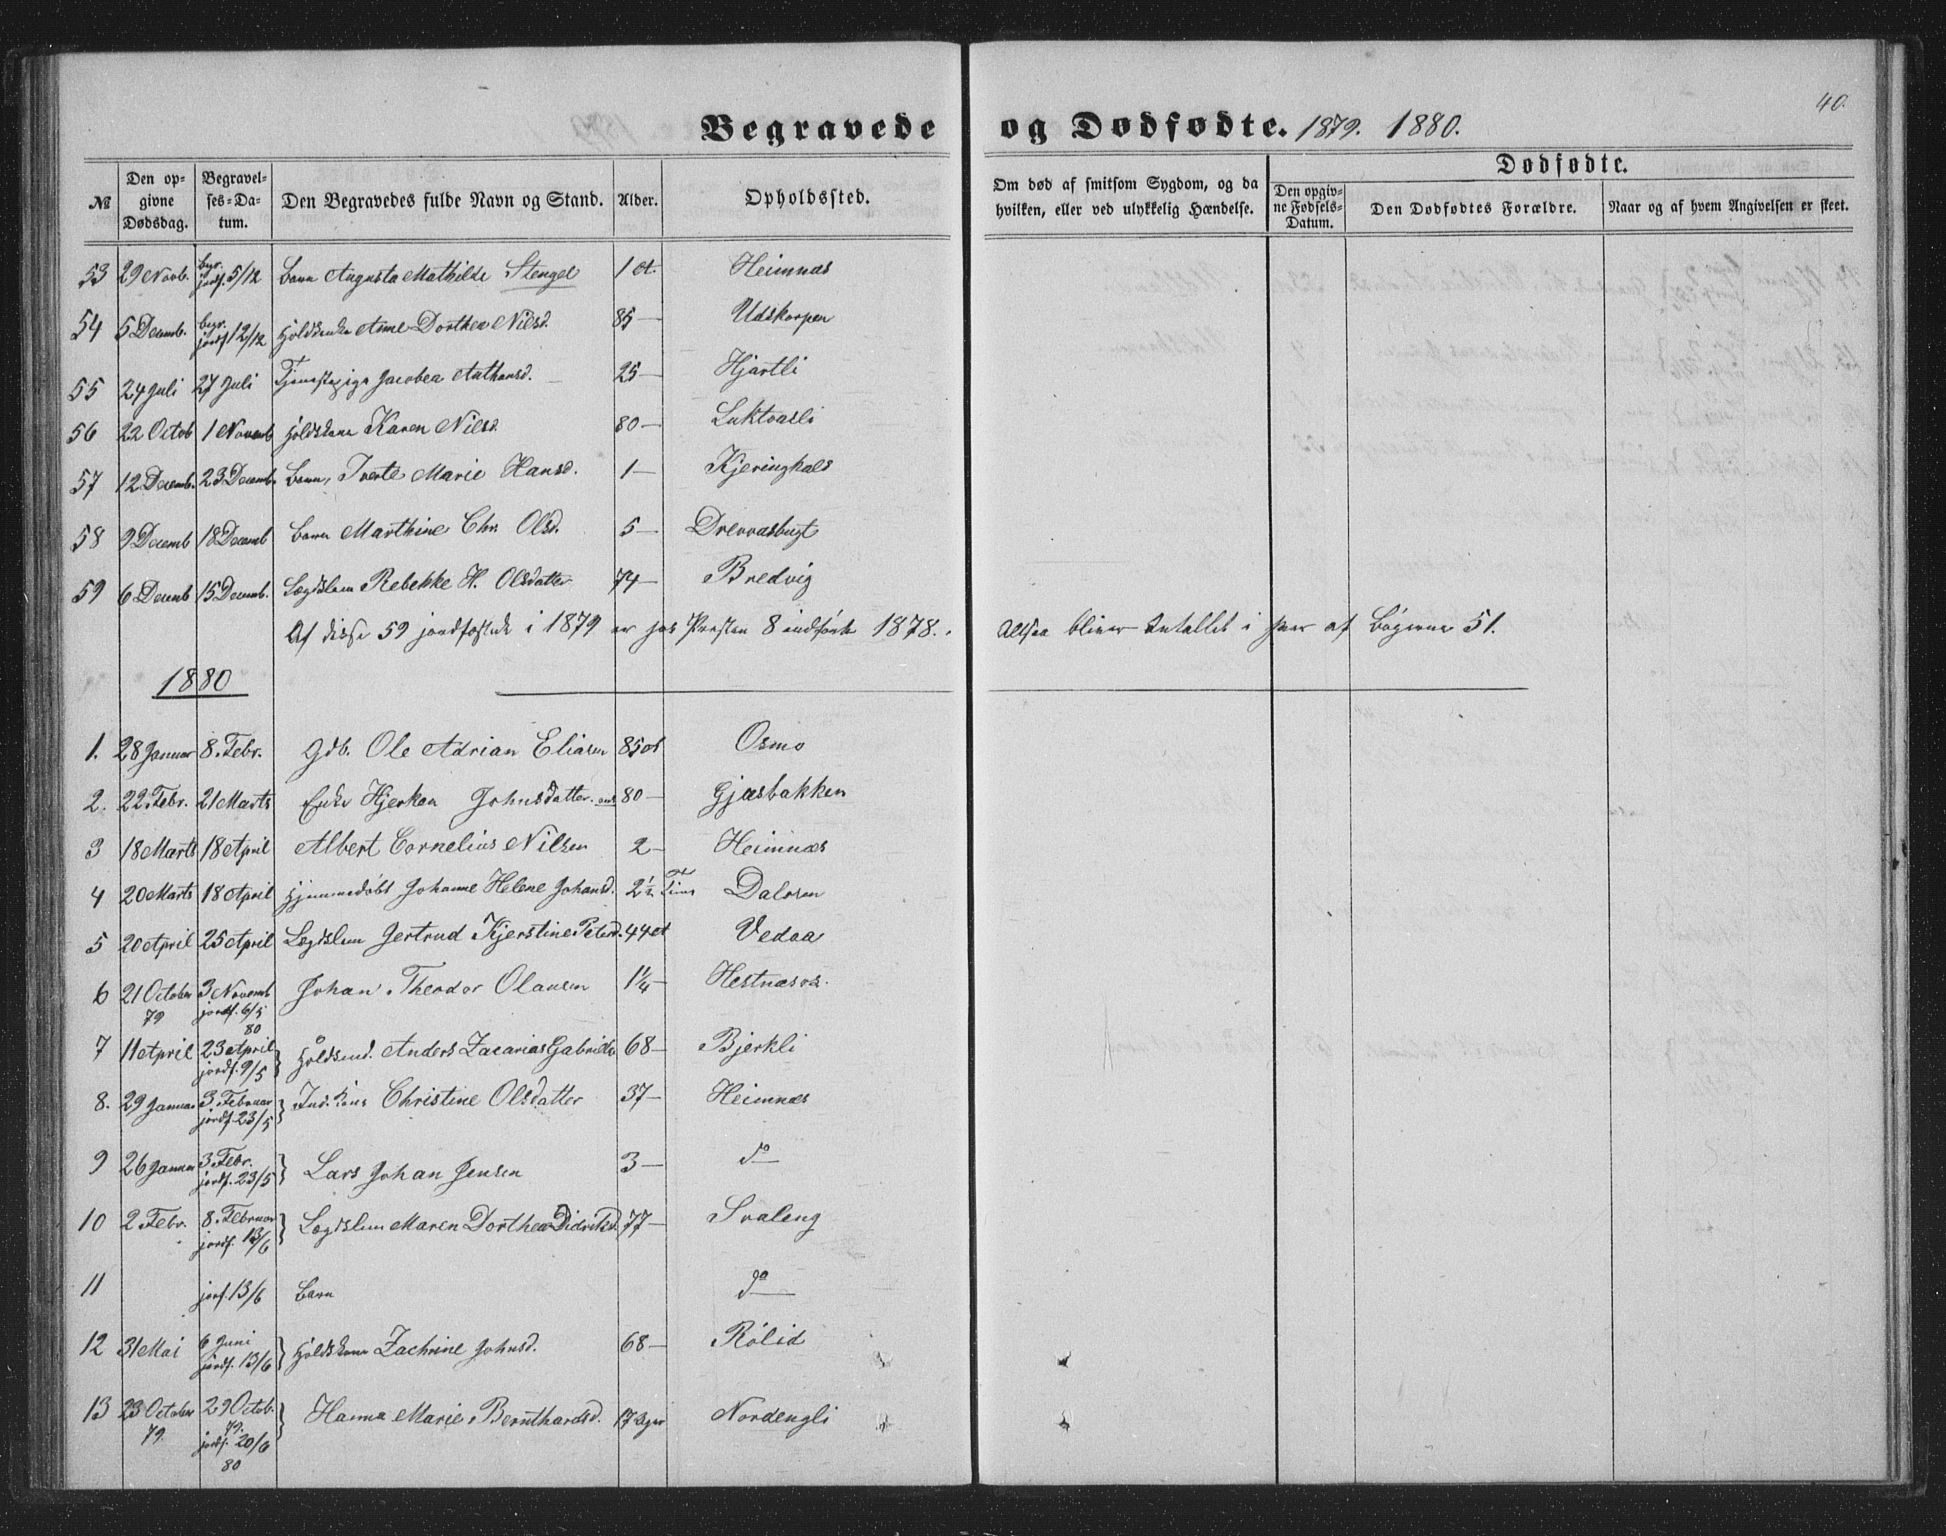 40.
Begravede og Dødfødte. 1879. 1880.
Dødfødte.
№ Den opgivne Dødsdag. Begravelses-Datum. Den Begravedes fulde Navn og Stand. Alder. Opholdssted. Om død af smitsom Sygdom, og da hvilken, eller ved ulykkelig Hændelse. Den opgivne Fødsels-Datum. Den Dødfødtes Forældre. Naar og af hvem Angivelsen er skeet.
53 29 Novb. begr. jordf. 5/12 Barn Augusta Mathilde Stengel 1 et. Heimnæs
54 5 Decemb. begr. jordf 12/12 Anne Dorthea Nilsd. 85 — Udskarpen
55 24 Juli 27 Juli Tjenestepige Jacobea 25 — Hjartli
56 22 Octob 1 Novemb Karen Nilsd. 80 — Luktvasli
57 12 Decemb. 23 Decemb. Barn, Marie Hansd. 1 — Kjeringhals
58 9 Decemb 18 Decemb Barn Marthine Chr. Olsd. 5 — Drevvasbugt
59 6 Decemb 15 Decemb. Lægdslem Rebekke H. Olsdatter 74 — Bredvig
Af disse 59 jordfæstede i 1879 er hos Presten 8 indførte 1878. Altsaa bliver Antallet i hver af Bøgerne 51.
1880
1. 28 Januar 8. Febr. Gdb. Ole Adrian Eliasen 85 et Osmo
2. 22. Febr. 21 Marts Enke Johnsdatter. 80 — Gjæsbakken
3 18 Marts 18 April Albert Cornelius Nilsen 2 — Heimnæs
4 20 Marts 18 April Hjemmedøbt Johanne Helene Johansd. 2 1/2 Time Dalosen
5 20 April 25 April Lægdslem Gertrud Kjerstine Petersd. 44 et Vedaa
6 21 October 79 3 Novemb jordf. 6/5 80 Johan Theodor Olausen 1 1/4 — Hestnæsos.
7 11 April 23 April jordf. 9/5 Anders Zacarias Gabriels. 68 — Bjerkli
8. 29 Januar 3. Februar jordf. 23/5 Ind. Kone Christine Olsdatter 37 — Heimnæs
9 26 Januar 3. Febr. jordf. 23/5 Lars Johan Jensen 3 — do
10 2. Febr. 8. Februar jordf. 13/6 Lægdslem Maren Dorthea Didriksd. 77 — Svaleng
11 jorf. 13/6 Barn do
12 31 Mai 6 Juni jordf. 13/6 Zachrine Johnsd. 68 — Rølid
13 23 October 79. 29 Octob. 79. jordf. 20/6 80 Hanna Marie Bernthardsd. 17 Nordengli